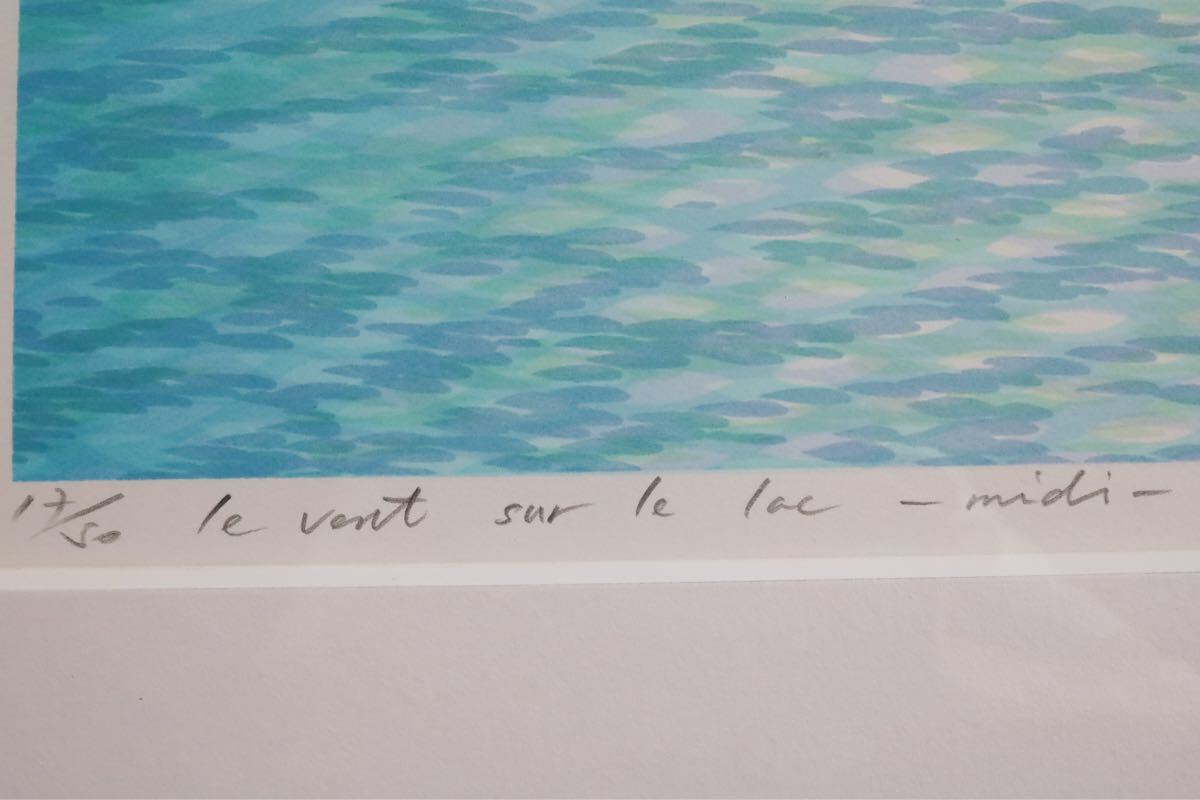 17/50 le vent sur le lac - midi -